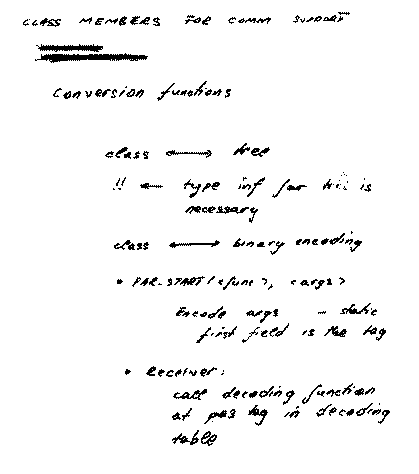 CLASS MEMBERS FOR COMM SUPPORT
Conversion functions
class ⟷ tree
!! ← type inf for this is
necessary
class ⟷ binary encoding
• PAR-START(<func>, <args>
Encode args - static
first field is the tag
• Receiver:
call decoding function
at pos tag in decoding
table